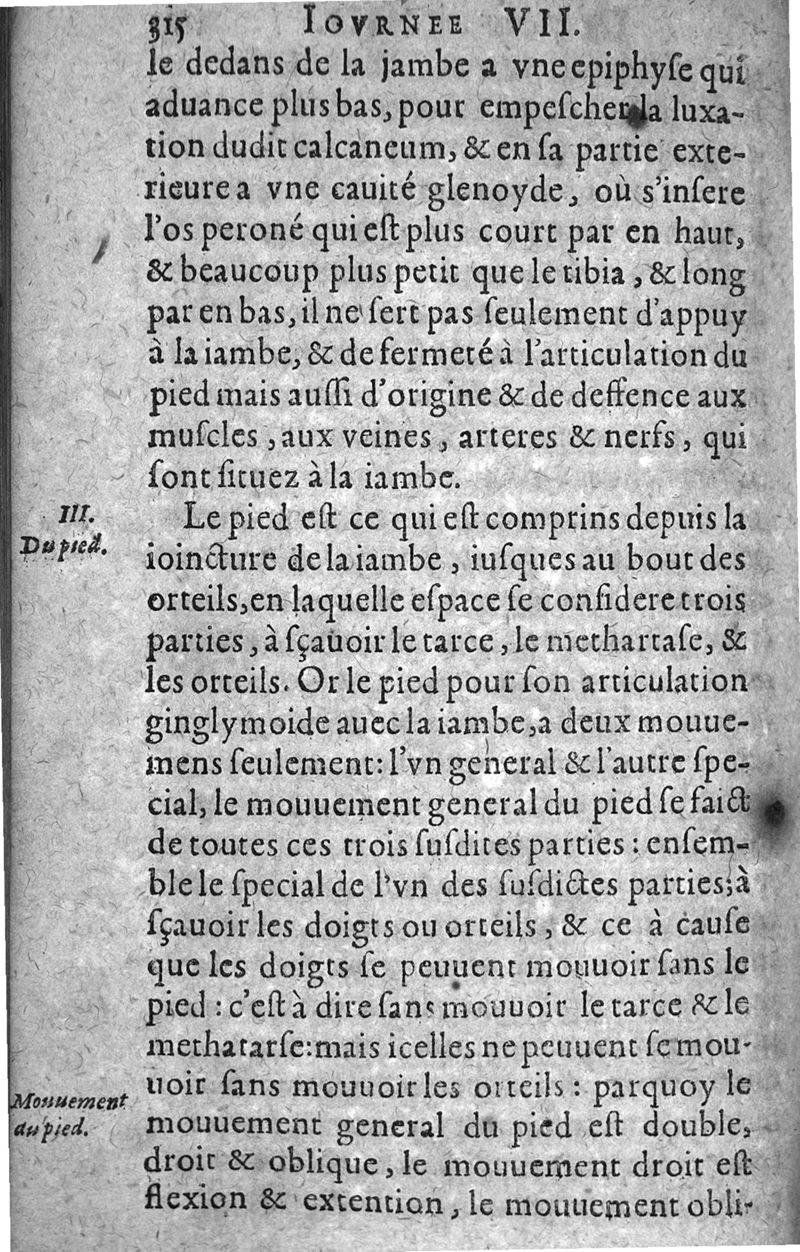 315 IOVRNEE VII.
le dedans de la jambe a vne epiphyſe qui
aduance plus bas, pour empeſcher la luxa-
tion dudit calcaneum, & en ſa partie exte-
rieure a vne cauité glenoyde, où s'inſere
l'os peroné qui eſt plus court par en haut,
& beaucoup plus petit que le tibia, & long
par en bas, il ne ſert pas ſeulement d'appuy
à la iambe, & de fermeté à l'articulation du
pied mais auſſi d'origine & de deffence aux
muſcles, aux veines, arteres & nerfs, qui
ſont ſituez à la iambe.
III.
Du pied.
Le pied eſt ce qui eſt comprins depuis la
ioincture de la iambe, iuſques au bout des
orteils, en laquelle eſpace ſe conſidere trois
parties, à ſçauoir le tarce, le methartaſe, &
les orteils. Or le pied pour ſon articulation
ginglymoide auec la iambe, a deux mouue-
mens ſeulement: l'vn general & l'autre ſpe-
cial, le mouuement general du pied ſe faict
de toutes ces trois ſuſdites parties: enſem-
ble le ſpecial de l'vn des ſuſdictes parties; à
ſçauoir les doigts ou orteils, & ce à cauſe
que les doigts ſe peuuent mouuoir ſans le
pied: c'eſt à dire ſans mouuoir le tarce & le
methatarſe: mais icelles ne peuuent ſe mou-
uoir ſans mouuoir les orteils: parquoy le
Mouuement
du pied.
mouuement general du pied eſt double,
droit & oblique, le mouuement droit eſt
flexion & extention, le mouuement obli-